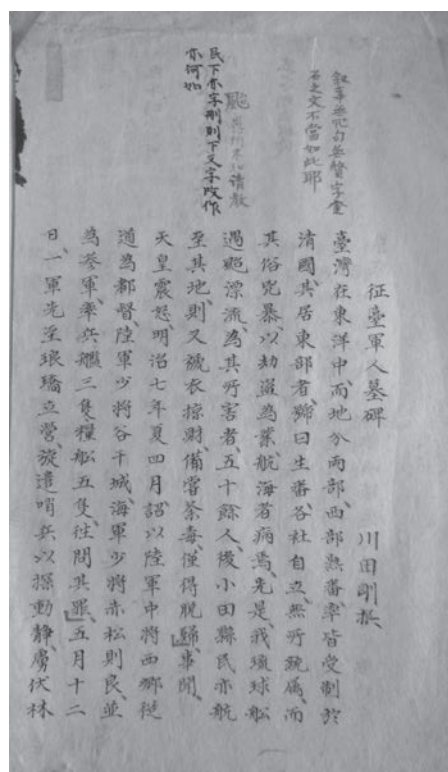 叙事無冗句無贅字金
石之文不當如此耶
颱 請教
民下亦字刪則下又字改作
亦何如
征臺軍人墓碑　川田剛撰
臺灣在東洋中、而地分兩部、西部熟番率皆受制於
清國、其居東部者、號曰生番、各社自立、無所統屬、而
其俗兇暴、以劫盜為業、航海者病焉、先是、我琉球船
遇颱漂流、為其所害者、五十餘人、後小田縣民亦航
至其地、則又褫衣掠財、備嘗荼毒、僅得脫歸、事聞、
天皇震怒、明治七年夏四月、詔以陸軍中將西鄉從
道為都督、陸軍少將谷干城、海軍少將赤松則良、並
為參軍、率兵艦三隻、糧船五隻、往問其罪、五月十二
日、一軍先至琅璚立營、旋遣哨兵、以探動靜、虜伏林